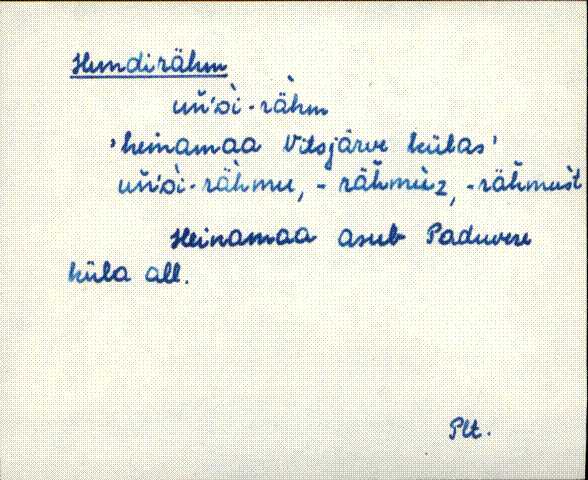 Hundirähm
uǹ'ᴅì-rähm
'heinamaa Vitsjärve külas'
uǹ'ᴅì-rähmu, -räh̆mùz, -räh̆must
Heinamaa asub Paduvere
küla all.
Plt.